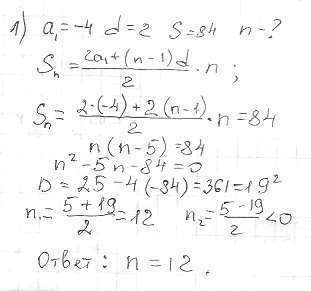 1) a₁=-4 d=2 S=84 n-?
Sₙ=(2a₁+(n-1)d)/2·n ;
Sₙ=(2·(-4)+2(n-1))/2·n=84
n(n-5)=84
n²-5n-84=0
D=25-4(-84)=361=19²
n₁=(5+19)/2=12 n₂=(5-19)/2<0
Ответ: n=12.